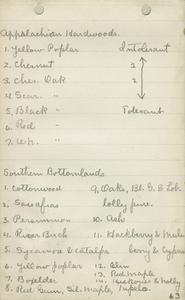 Appalachian Hardwoods.
1. Yellow Poplar Intolerant
2. Chesnut 2
3. Ches. Oak
4. Scar. "
5. Black " Tolerant
6. Red "
7. Wh. "
Southern Bottomlands
1. Cottonwood 9. Oaks, Bl. G. & Lob.
2. Sassafras lolly pine.
3. Persimmon 10. Ash
4. River Birch 11. Hackberry & Mul-
5. Sycamore & Catalpa berry & Cypress
6. Yellow poplar 12. Elm
7. Boxelder 13. Red Maple
8. Red Gum, Sil. Maple, Tupelo 14. Hickories & Holly